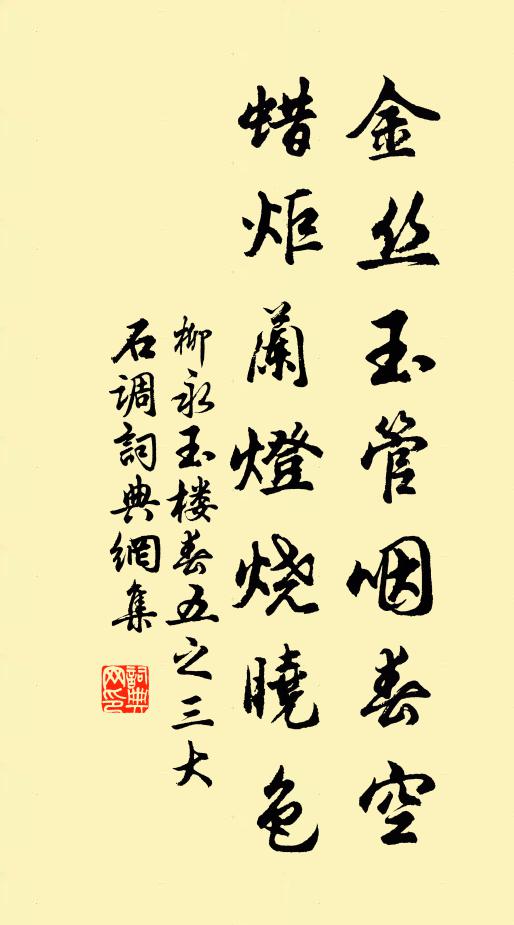 金丝玉管咽春空
蜡炬蘭燈烧曉色
柳永玉楼春五之三大
石调詞典網集
詞典
网印